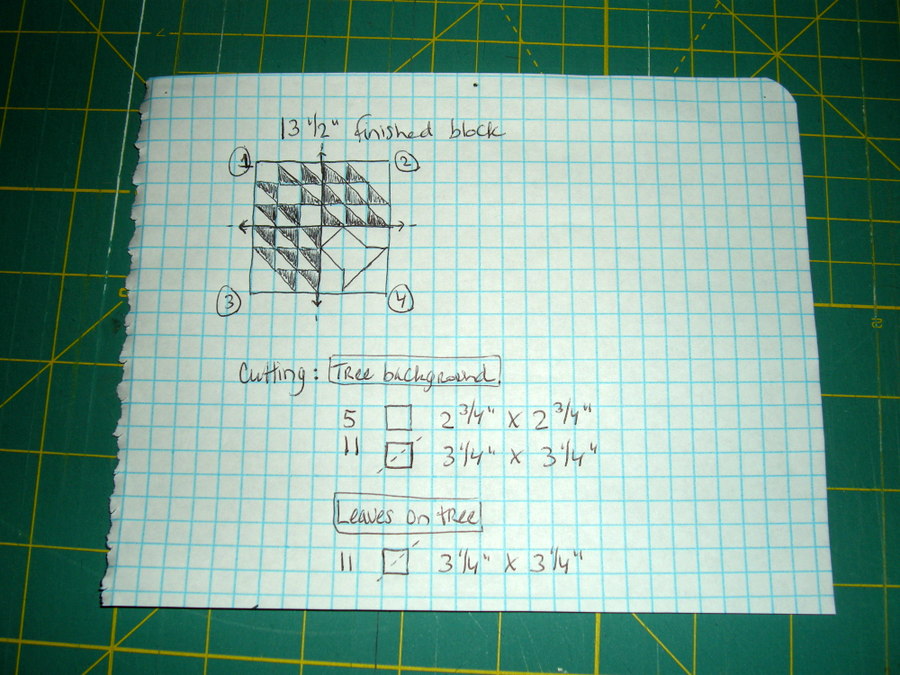 13 1/2" finished block
1 2
3 4
Cutting: Tree background
5 2 3/4" x 2 3/4"
11 3 1/4" x 3 1/4"
Leaves on tree
11 3 1/4" x 3 1/4"